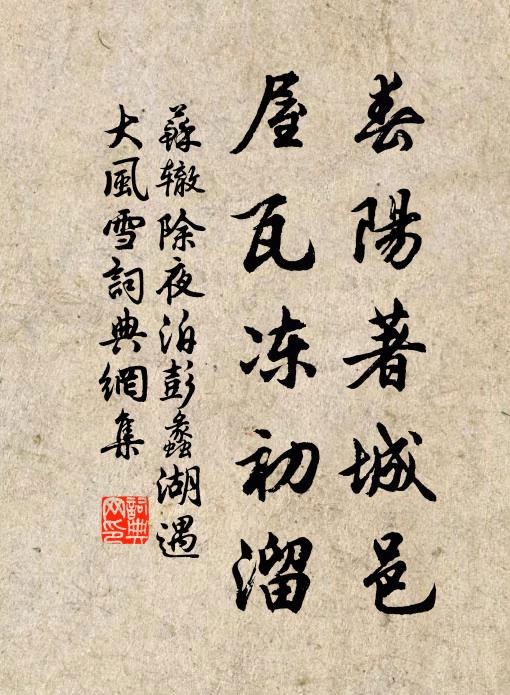 春陽著城邑
屋瓦冻初溜
蘇辙除夜泊彭蠡湖遇
大風雪詞典網集
詞典
网印